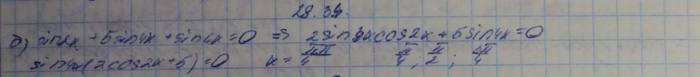 28.39.
б) sin2x + 5sin4x + sin6x = 0 ⇒ 2sin4xcos2x + 5sin4x = 0
sin4x(2cos2x + 5) = 0 x = πn/4 π/4, π/2;